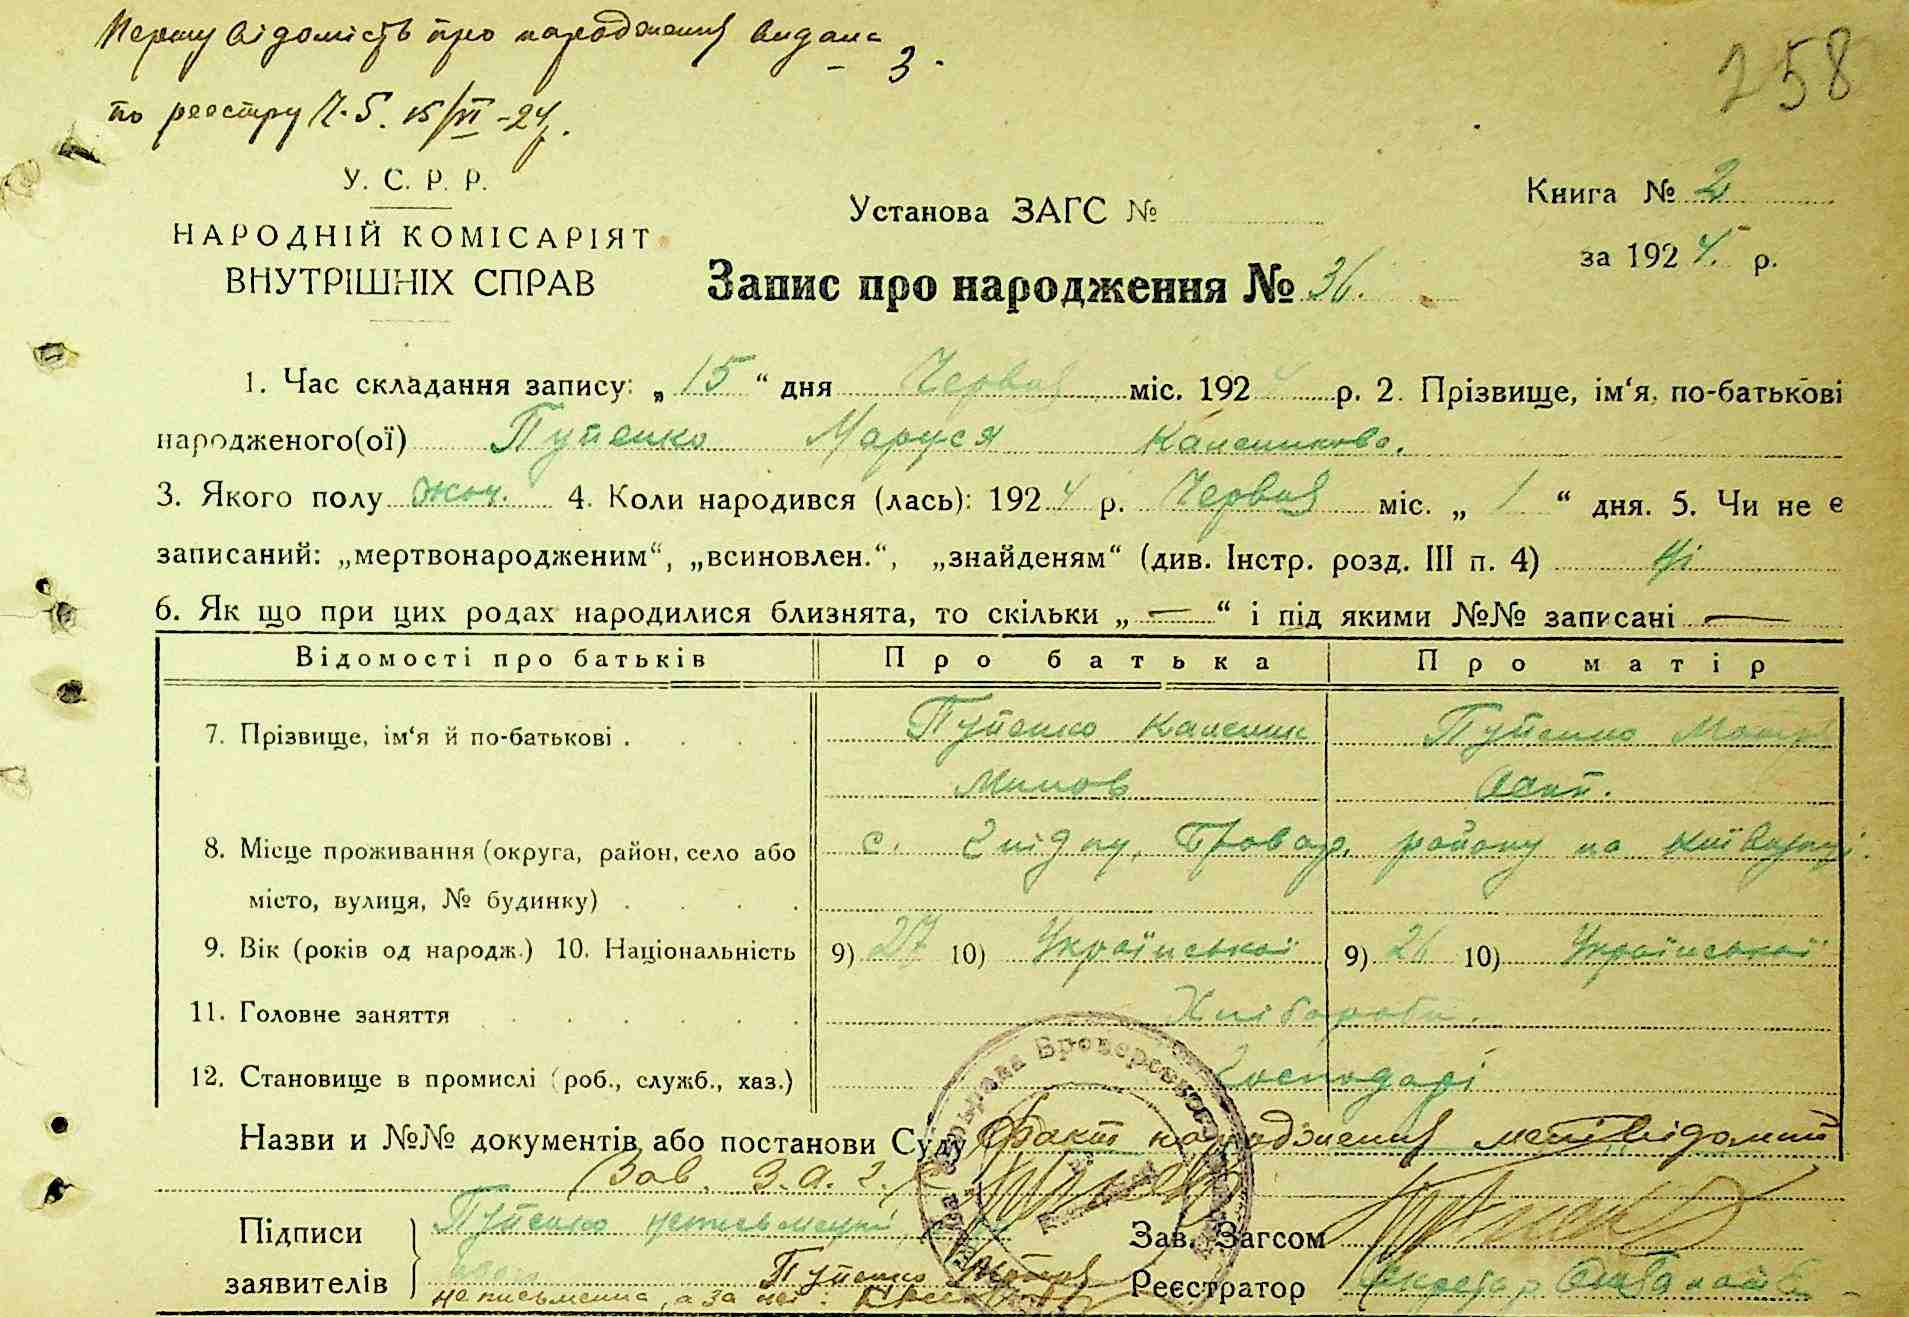 Першу відомість про народження видана
3.
по реєстру Ч. 5. 15/VI-24 р.
258
У. С. Р. Р.
НАРОДНІЙ КОМІСАРІЯТ
ВНУТРІШНІХ СПРАВ
Установа ЗАГС №
Книга № 2
за 1924 р.
Запис про народження № 36.
1. Час складання запису: „ 15 “ дня Червня міс. 1924 р. 2. Прізвище, ім‘я, по-батькові
народженого(ої) Пупенко Маруся Каленикова.
3. Якого полу жіноч. 4. Коли народився (лась): 1924 р. Червня міс. „ 1 “ дня. 5. Чи не є
записаний: „мертвонародженим“, „всиновлен.“, „знайденям“ (див. Інстр. розд. III п. 4) Ні
6. Як що при цих родах народилися близнята, то скільки „ — “ і під якими №№ записані —
Відомості про батьків Про батька Про матір
7. Прізвище, ім‘я й по-батькові . . . . Пупенко Каленик Пупенко Мотря
Осип.
8. Місце проживання (округа, район, село або с. Бровар. району на Київщині.
місто, вулиця, № будинку) . . . .
9. Вік (років од народж.) 10. Національність 9) 27 10) Української 9) 26 10) Української
11. Головне заняття . . . . . . Хлібороби.
12. Становище в промислі (роб., служб., хаз.) Господарі
Назви и №№ документів або постанови Суду Факт народження мені відомий
Зав. З.А.Г.С.
Підписи Пупенко неписьменний Зав. Загсом
заявителів Пупенко Мотря Реєстратор Секретар
неписьменна, а за неї: